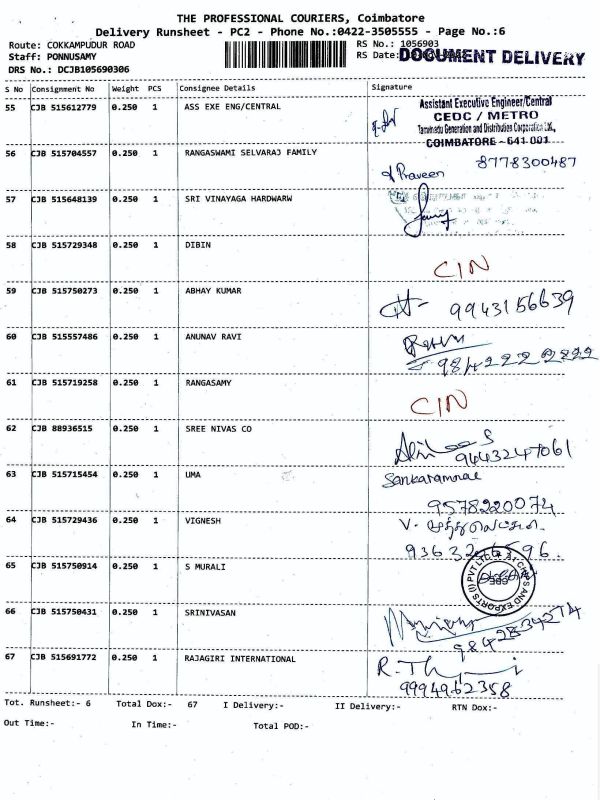 THE PROFESSIONAL COURIERS, Coimbatore
Delivery Runsheet - PC2 - Phone No.:0422-3505555 - Page No.:6
Route: COKKAMPUDUR ROAD
RS No.: 1056903
Staff: PONNUSAMY
RS Date:
DOCUMENT DELIVERY
DRS No.: DCJB105690306
S No Consignment No Weight PCS Consignee Details Signature
55 CJB 515612779 0.250 1 ASS EXE ENG/CENTRAL
Assistant Executive Engineer/Central
CEDC / METRO
Tamilnadu Generation and Distribution Corporation Ltd.,
COIMBATORE - 641 001.
56 CJB 515704557 0.250 1 RANGASWAMI SELVARAJ FAMILY
8778300487
Praveen
57 CJB 515648139 0.250 1 SRI VINAYAGA HARDWARW
58 CJB 515729348 0.250 1 DIBIN
CIN
59 CJB 515750273 0.250 1 ABHAY KUMAR
9943156639
60 CJB 515557486 0.250 1 ANUNAV RAVI
984 222 2222
61 CJB 515719258 0.250 1 RANGASAMY
CIN
62 CJB 88936515 0.250 1 SREE NIVAS CO
9443247061
63 CJB 515715454 0.250 1 UMA
9578220074
64 CJB 515729436 0.250 1 VIGNESH
65 CJB 515750914 0.250 1 S MURALI
66 CJB 515750431 0.250 1 SRINIVASAN
9842834274
67 CJB 515691772 0.250 1 RAJAGIRI INTERNATIONAL
9994962358
Tot. Runsheet:- 6 Total Dox:- 67 I Delivery:- II Delivery:- RTN Dox:-
Out Time:- In Time:- Total POD:-